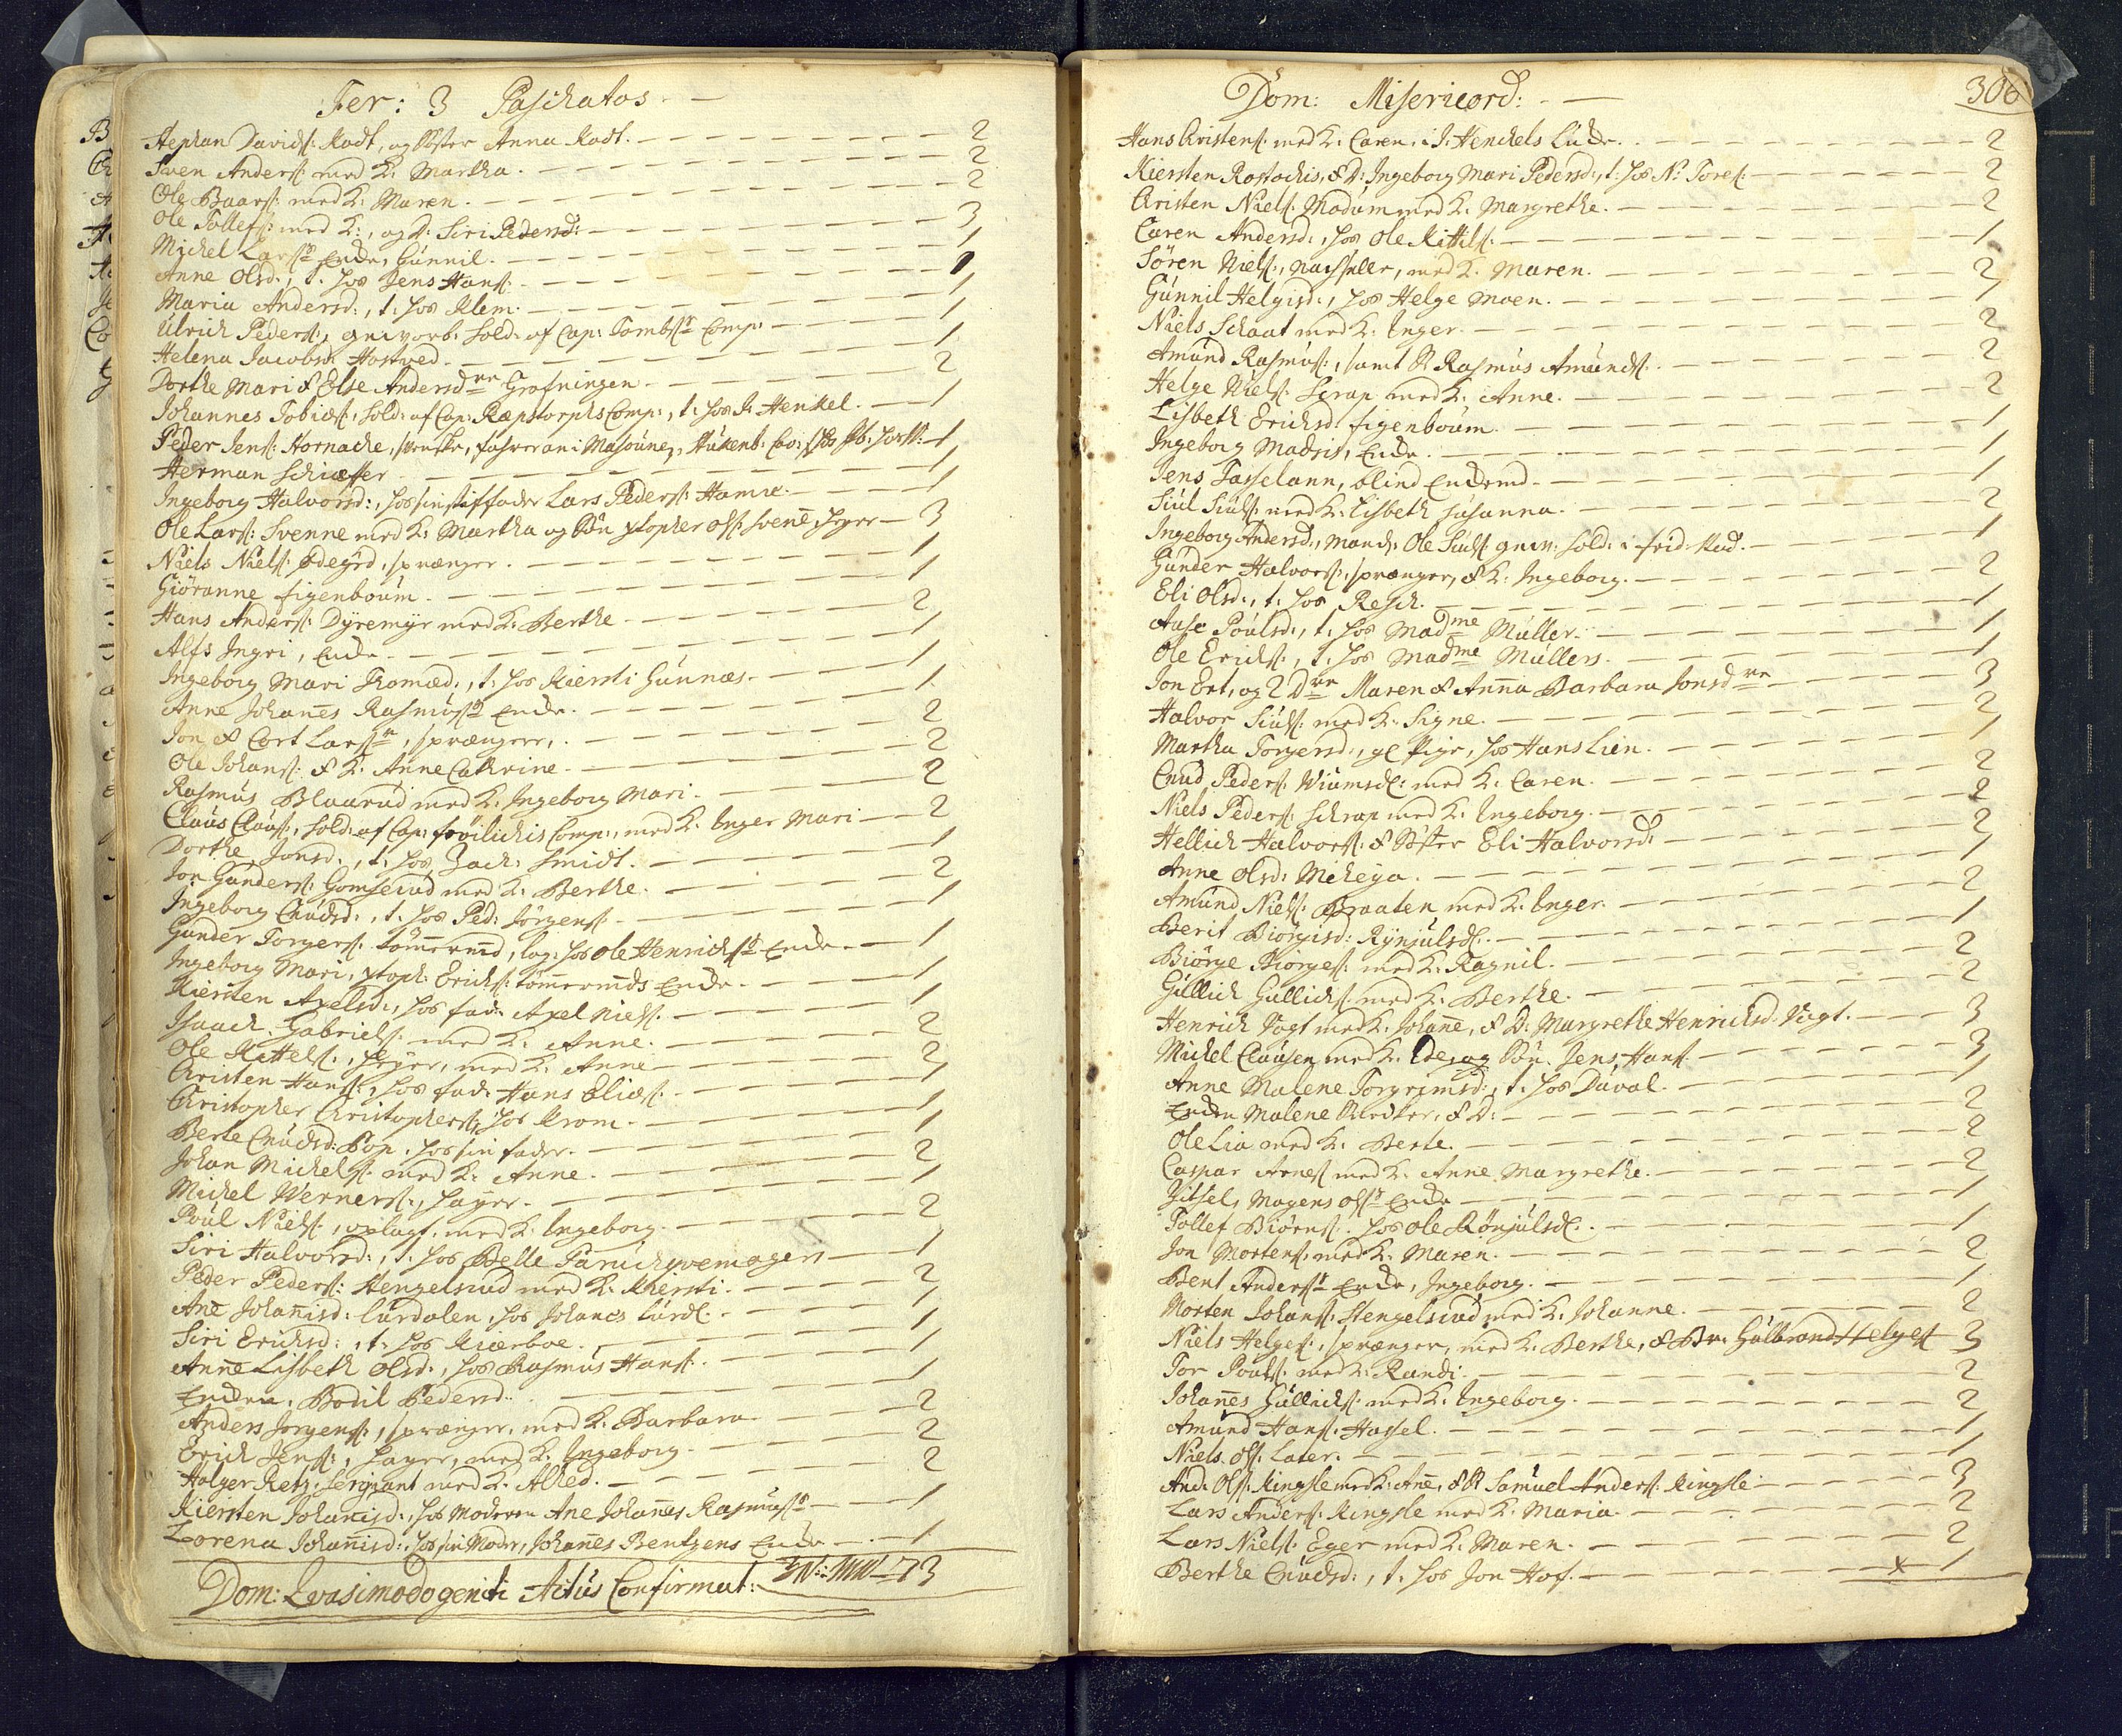 Fer: 3 Paschatos
Stephan Davids: Radt, og Søster Anna Radt. 2
Sven Anders: med K: Martha. 2
Ole Baars: med K: Maren. 2
Ole Tollefs: med K:, og D: Siri Pedersd: 3
Michel Larss: Enke, Gunnil. 1
Anne Olsd:, t: hos Jens Hans: 1
Maria Andersd:, t: hos Klem: 1
Ulrich Peders:, gevorb: Sold: af Cap: Comp: 1
Helena Jacobsd: Hostved 1
Dorthe Mari & Else Andersdre Grofningen 2
Johannes Tobiæs:, Sold: af Cap: Ræpstorphs Comp:, t: hos H: Henkel. 1
Peder Jens: Hornache, 1
Herman Schiæffer 1
Ingeborg Halvorsd:, hos sin stiffader Lars Peders: Hamre. 1
Ole Lars: Svenne med K: Martha og Søn Xstopher Ols: Svene, 3
Niels Niels: Ødegrd, sprænger. 1
Giøranne figenboum. 1
Hans Anders: Dyremyr med K: Berthe 2
Alfs Ingri, Enke. 1
Ingeborg Mari Thomæd:, t: hos Kiersti Gunnæs. 1
Anne Johanes Rasmuss: Enke. 1
Jon & Cort Larssr, sprænger, 2
Ole Johans: & K: Anne Cathrine. 2
Rasmus Blaarud med K: Ingeborg Mari. 2
Claus Claus:, Sold: af Cap: frøilichis Comp:, med K: Inger Mari 2
Dorthe Jonsd:, t: hos Zach: Smidt. 1
Jon Gunders: Gomserud med K: Berthe. 2
Ingeborg Cnudsd:, t: hos Ped: Jørgens: 1
Gunder Torgers: tømermd, log: hos Ole Henrichss: Enke. 1
Ingeborg Mari, Xstoph: Erichs: tømermds Enke. 1
Kiersten Axelsd:, hos fad: Axel Niels: 1
Isaach Gabriels: med K: Anne. 2
Ole Kittels:, med K: Anne 2
Christen Hans:, hos fad: Hans Eliæs: 1
Christopher Christophers:, hos Krom. 1
Berte Cnudsd: Pop, hos sin fader. 1
Johan Michels: med K: Anne. 2
Michel Werners:, hayer. 1
Poul Niels:, oplagt, med K: Ingeborg. 2
Siri Halvorsd:, t: hos Belle Paruchvemagers 1
Peder Peders: Hengelsrud med K: Khiersti. 2
Ane Johanisd: Lurdalen, hos Johanes Lurdl: 1
Siri Erichsd:, t: hos Kierboe. 1
Anne Lisbeth Olsd:, hos Rasmus Hans: 1
Enken, Bodil Pedersd: 1
Anders Jørgens:, sprænger, med K: Barbara. 2
Erich Jens:, hayer, med K: Ingeborg. 2
Holger Retz, Sergiant med K: Alhed. 2
Kiersten Johanisd:, hos Moderen Ane Johanes Rasmuss: 1
Lorena Johanisd:, hos sin Moder, Johanes Bentzens Enke 1
73
Dom: Qvasimodogeniti Actus Confirmat:
306
Dom: Misericord:
Hans Christens: med K: Caren, i J: Henchels Lucke. 2
Kiersten Rostochis, & D: Ingeborg Mari Pedersd:, t: hos N: Tores: 2
Christen Niels: Modum med K: Margrethe. 2
Caren Andersd:, hos Ole Kittils: 1
Søren Niels:, med K: Maren. 2
Gunnil Helgisd:, hos Helge Moen. 1
Niels Schaat med K: Inger. 2
Amund Rasmus:, samt S: Rasmus Amunds: 2
Helge Niels: Scrap med K: Anne. 2
Lisbeth Erichsd: figenboum. 1
Ingeborg Madsis, Enke. 1
Jens Tasselann, blind 1
Siul Siuls: med K: Lisbeth Susanna. 2
Ingeborg Andersd:, Mand: Ole Siuls: gev: Sold: i frid:stad. 1
Gunder Halvors:, sprænger, & K: Ingeborg. 2
Eli Olsd:, t: hos Resch. 1
Aase Poulsd:, t: hos Madme Müller. 1
Ole Erichs:, t: hos Madme Müllers. 1
Jon Ert, og 2 Dre Maren & Anna Barbara Jonsdre 3
Halvor Siuls: med K: Signe. 2
Martha Torgersd:, gl Pige, hos Hans Lien. 1
Cnud Peders: Wiumsdl: med K: Caren. 2
Niels Peders: Schrap med K: Ingeborg. 2
Hellich Halvors: & Søster Eli Halvorsd: 2
Anne Olsd: Meheja. 1
Amund Niels: Braaten med K: Inger. 2
Berit Biørgisd: Rynjulsdl: 1
Biørge Biørges: med K: Ragnil. 2
Gullich Gullichs: med K: Berthe. 2
Henrich Vogt med K: Johane, & D: Margrethe Henrichsd: Vogt. 3
Michel Clausen med K: Ede, og Søn Jens Hans: 3
Anne Malene Torgrimsd:, t: hos Duval. 1
Enken Malene & D: 2
Ole Lia med K: Berte. 2
Caspar Arnes: med K: Anne Margrethe. 2
Sitsel, Mogens Olss: Enke 1
Tollef Biørns: hos Ole Rønjulsdl: 1
Jon Mortens: med K: Maren. 2
Bent Anderss: Enke, Ingeborg. 1
Morten Johans: Hengelsrud med K: Johanne. 2
Niels Helges:, sprænger, med K: Berthe, & Br: Gulbrand Helges: 3
Tor Pouls: med K: Randi. 2
Johanes Gullichs: med K: Ingeborg. 2
Amund Hans: Hassel. 1
Niels Ols: Later. 1
And: Ols: Kingsle med K: Ane, & S: Samuel Anders: Kingsle 3
Lars Anders: Kingsle med K: Maria. 2
Lars Niels: Eger med K: Maren. 2
Berthe Cnudsd:, t: hos Jon Hof. x 1